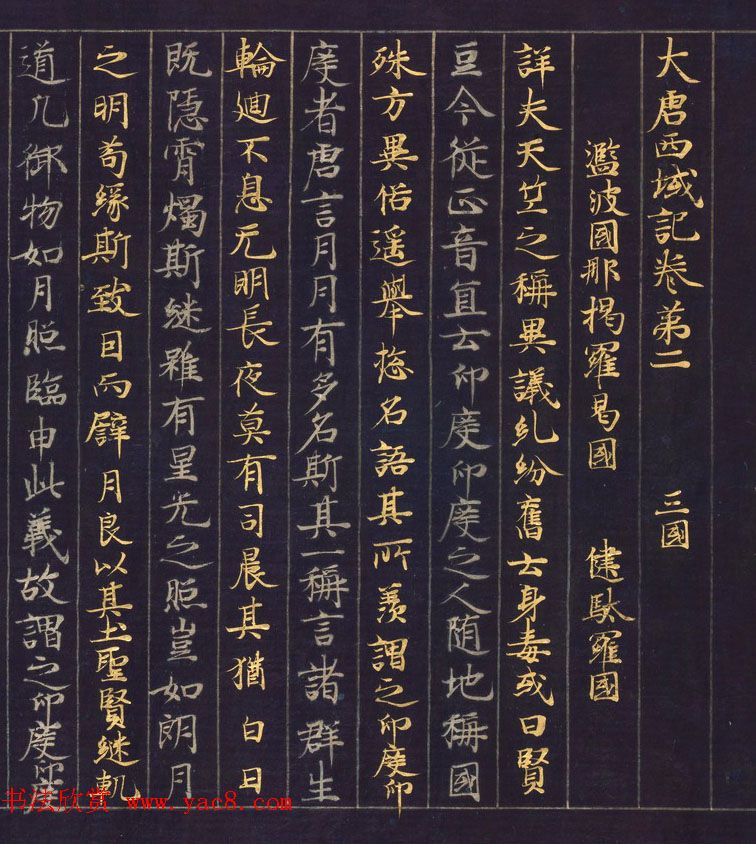 大唐西域記卷第二　三國
濫波國那揭羅曷國　健馱羅國
詳夫天竺之稱異議糺紛舊云身毒或曰賢
豆今從正音宜云印度印度之人随地稱國
殊方異俗遥舉惣名語其所羨謂之印度印
度者唐言月月有多名斯其一稱言諸群生
輪廻不息无明長夜莫有司晨其猶白日
既隱宵燭斯継雖有星光之照豈如朗月
之明苟緣斯致目而譬月良以其土聖賢継軌
道凡御物如月照臨由此義故謂之印度印度
书法欣赏 www.yac8.com